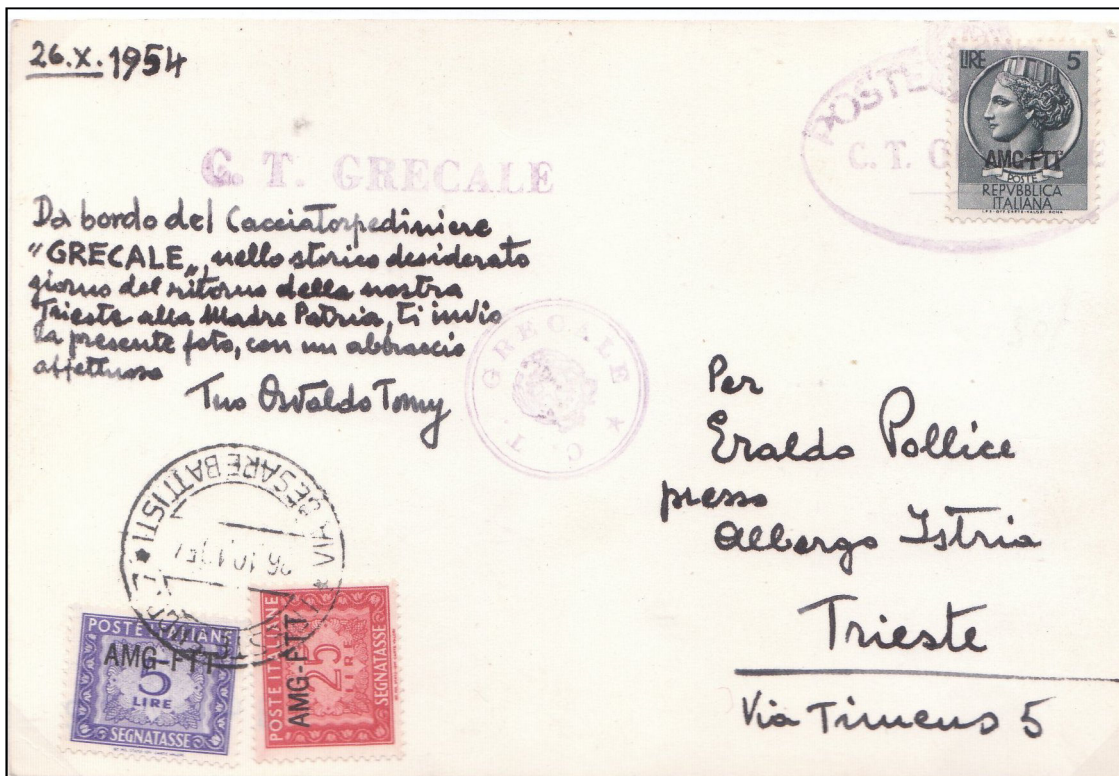 26.X.1954
C. T. GRECALE
Da bordo del Cacciatorpediniere
"GRECALE", nello storico desiderato
giorno del ritorno della nostra
Trieste alla Madre Patria, ti invio
la presente foto, con un abbraccio
affettuoso
Tuo Osvaldo Tomy
POSTE
C. T. G
LIRE 5
AMG-FTT
POSTE
REPVBBLICA
ITALIANA
C. T. GRECALE
Per
Eraldo Pollice
presso
Albergo Istria
Trieste
Via Timeus 5
VIA CESARE BATTISTI
26.10.195
POSTE ITALIANE
AMG-FTT
5
LIRE
SEGNATASSE
POSTE ITALIANE
AMG-FTT
25
LIRE
SEGNATASSE